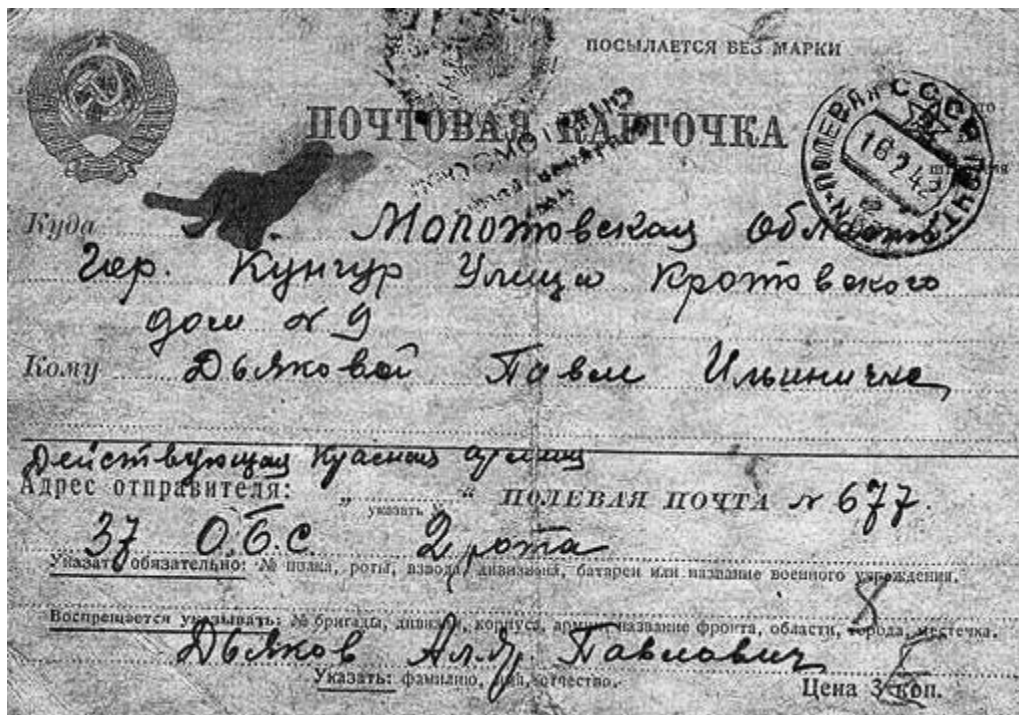 ПОСЫЛАЕТСЯ БЕЗ МАРКИ
ПОЧТОВАЯ КАРТОЧКА
ПРОСМОТРЕНО
ПОЛЕВАЯ ПОЧТА СССР
16 2 43
Куда Молотовская Область
Гор. Кунгур Улица Кротовского
дом № 9
Кому Дьяковой Павле Ильиничне
Действующая Красная армия
Адрес отправителя: „ “ ПОЛЕВАЯ ПОЧТА № 677.
указать
37 О.Б.С. 2 рота
Указать обязательно: № полка, роты, взвода, дивизиона, батареи или название военного учреждения.
Воспрещается указывать: № бригады, дивизии, корпуса, армии, название фронта, области, города, местечка.
Дьяков Павлович
Указать: фамилию, имя, отчество.
Цена 3 коп.